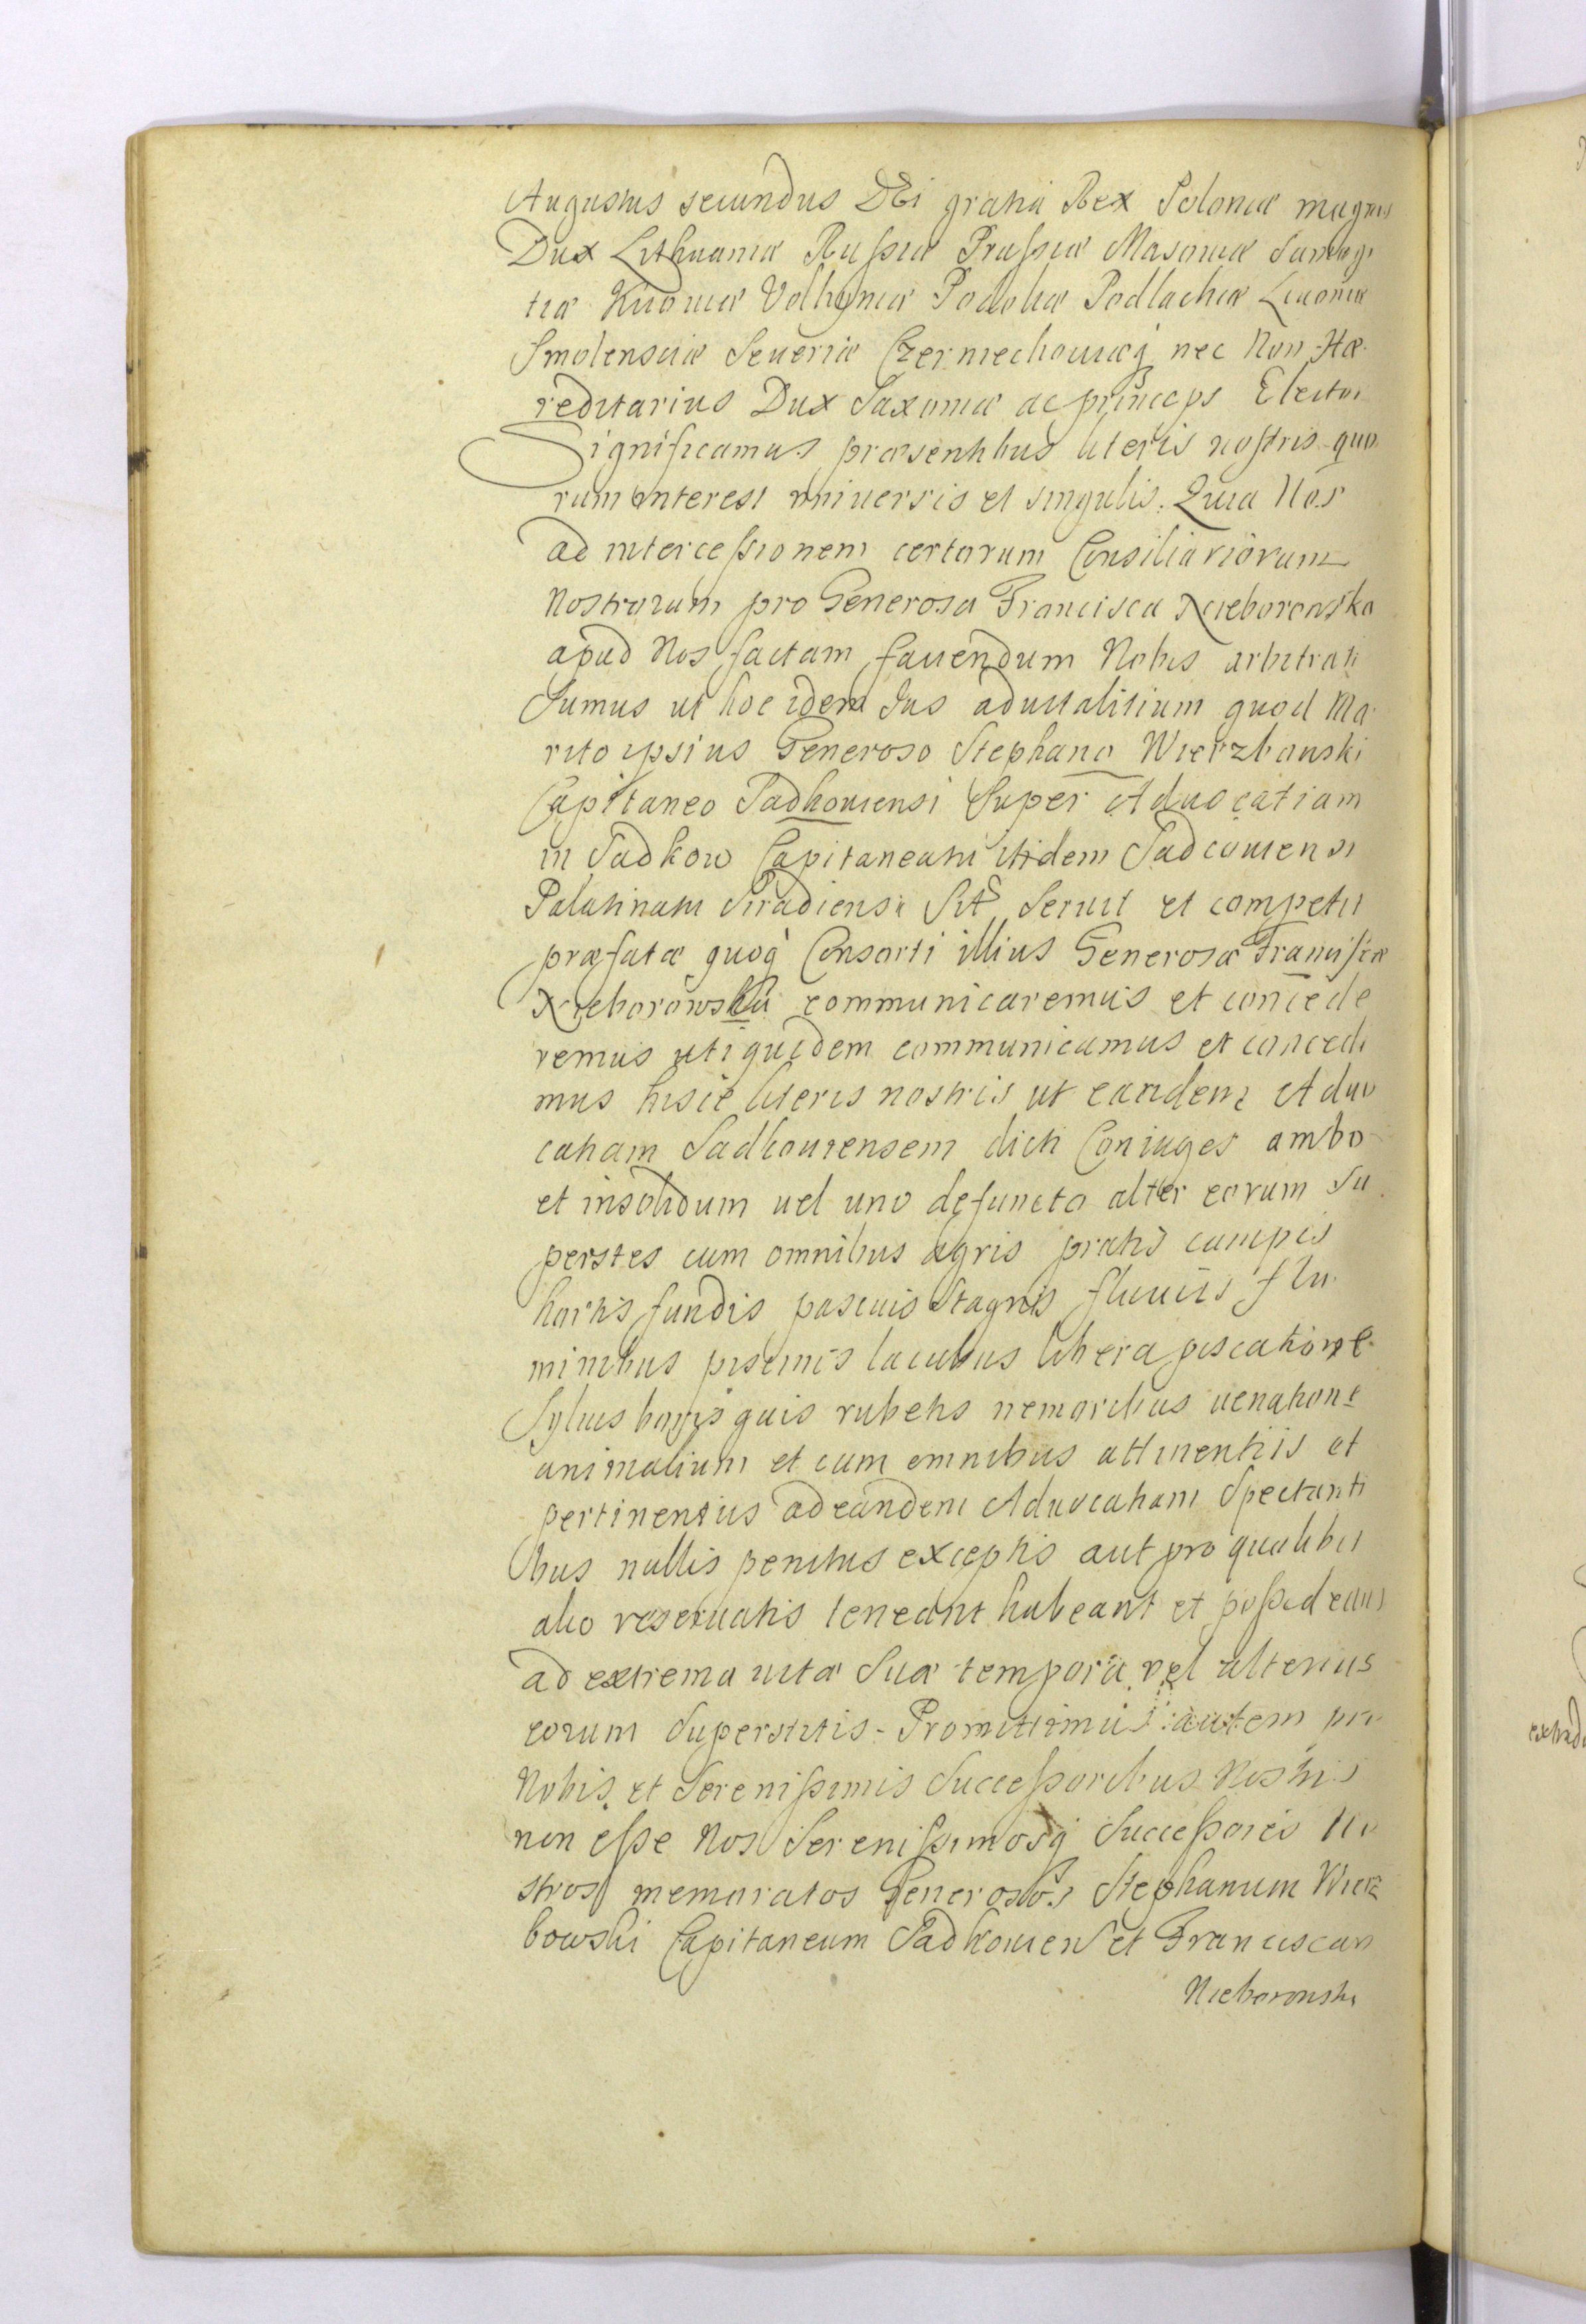 Augustus secundus DEi gratia Rex Poloniæ magnus
Dux Lithuaniæ Russiæ Prussiæ Masoviæ Samogi
tiæ Kijoviæ Volhyniæ Podoliæ Podlachiæ Livoniæ
Smolensciæ Severiæ Czerniechoviæq nec Non Hæ
reditarius Dux Saxoniæ ac princeps Elector
Significamus præsentibus literis nostris quo
rum interest universis et singulis. Quia Nos
ad intercessionem certorum Consiliariorum
Nostrorum pro Generosa Francisca Nieborowska
apud Nos factam favendum Nobis arbitrati
Sumus ut hoc idem Jus advitalitium quod Ma
rito ipsius Generoso Stephano Wierzbowski
Capitaneo Sadkoviensi Super Advocatiam
in Sadkow Capitaneatu itidem Sadcoviensi
Palatinatu Siradiensi Sit. Servit et competit
præfatæ quoq Consorti illius Generosæ Franciscæ
Nieborowska communicaremus et concede
remus uti quidem communicamus et concedi
mus hisce literis nostris ut eandem Advo
catiam Sadkoviensem dicti Coniuges ambo
et insolidum uel uno defuncto alter eorum Su
perstes cum omnibus agris pratis campis
hortis fundis pascuis Stagnis fluviis flu
minibus piscinis lacubus libera piscatione
Sylvis borris quis rubetis nemoribus uenatione
animalium et cum omnibus attinentiis et
pertinentiis ad eandem Advocatiam Spectanti
bus nullis penitus exceptis aut pro qualibet
alio reservatis teneant habeant et possideant
ad extrema vitæ Suæ tempora vel alterius
eorum Superstitis - Promittimus autem pro
Nobis et Serenissimis Successoribus Nostris
non esse Nos Serenissimosq Successores No
stros memoratos Generosos Stephanum Wierz
bowski Capitaneum Sadkovien et Franciscam
Nieborowska